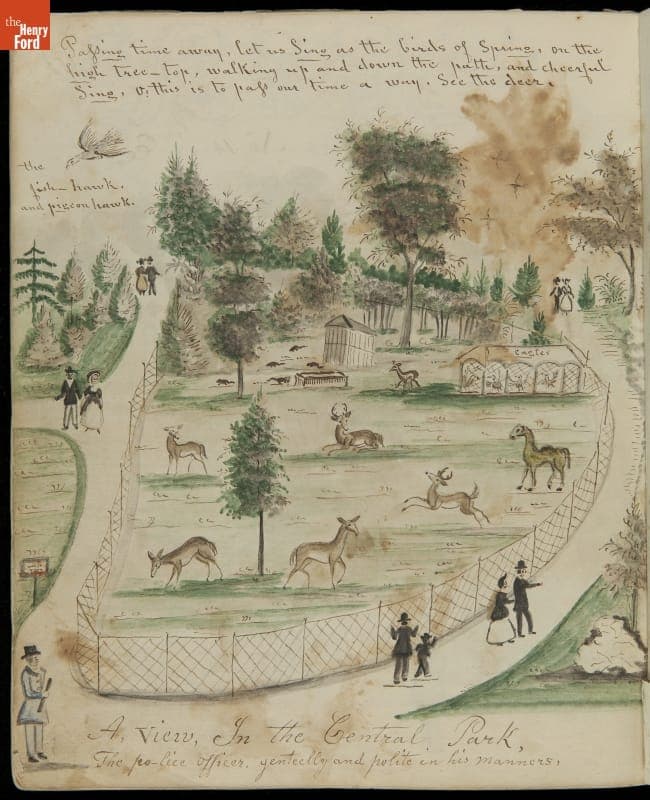 the
Henry
Ford
Passing time away, let us Sing as the birds of Spring, on the
high tree-top, walking up and down the path, and cheerful
Sing, o, this is to pass our time a way. See the deer.
the
fish-hawk,
and pigeon hawk.
Eagles
A, View, In the Central Park,
The po-lice officer, genteelly and polite in his manners,